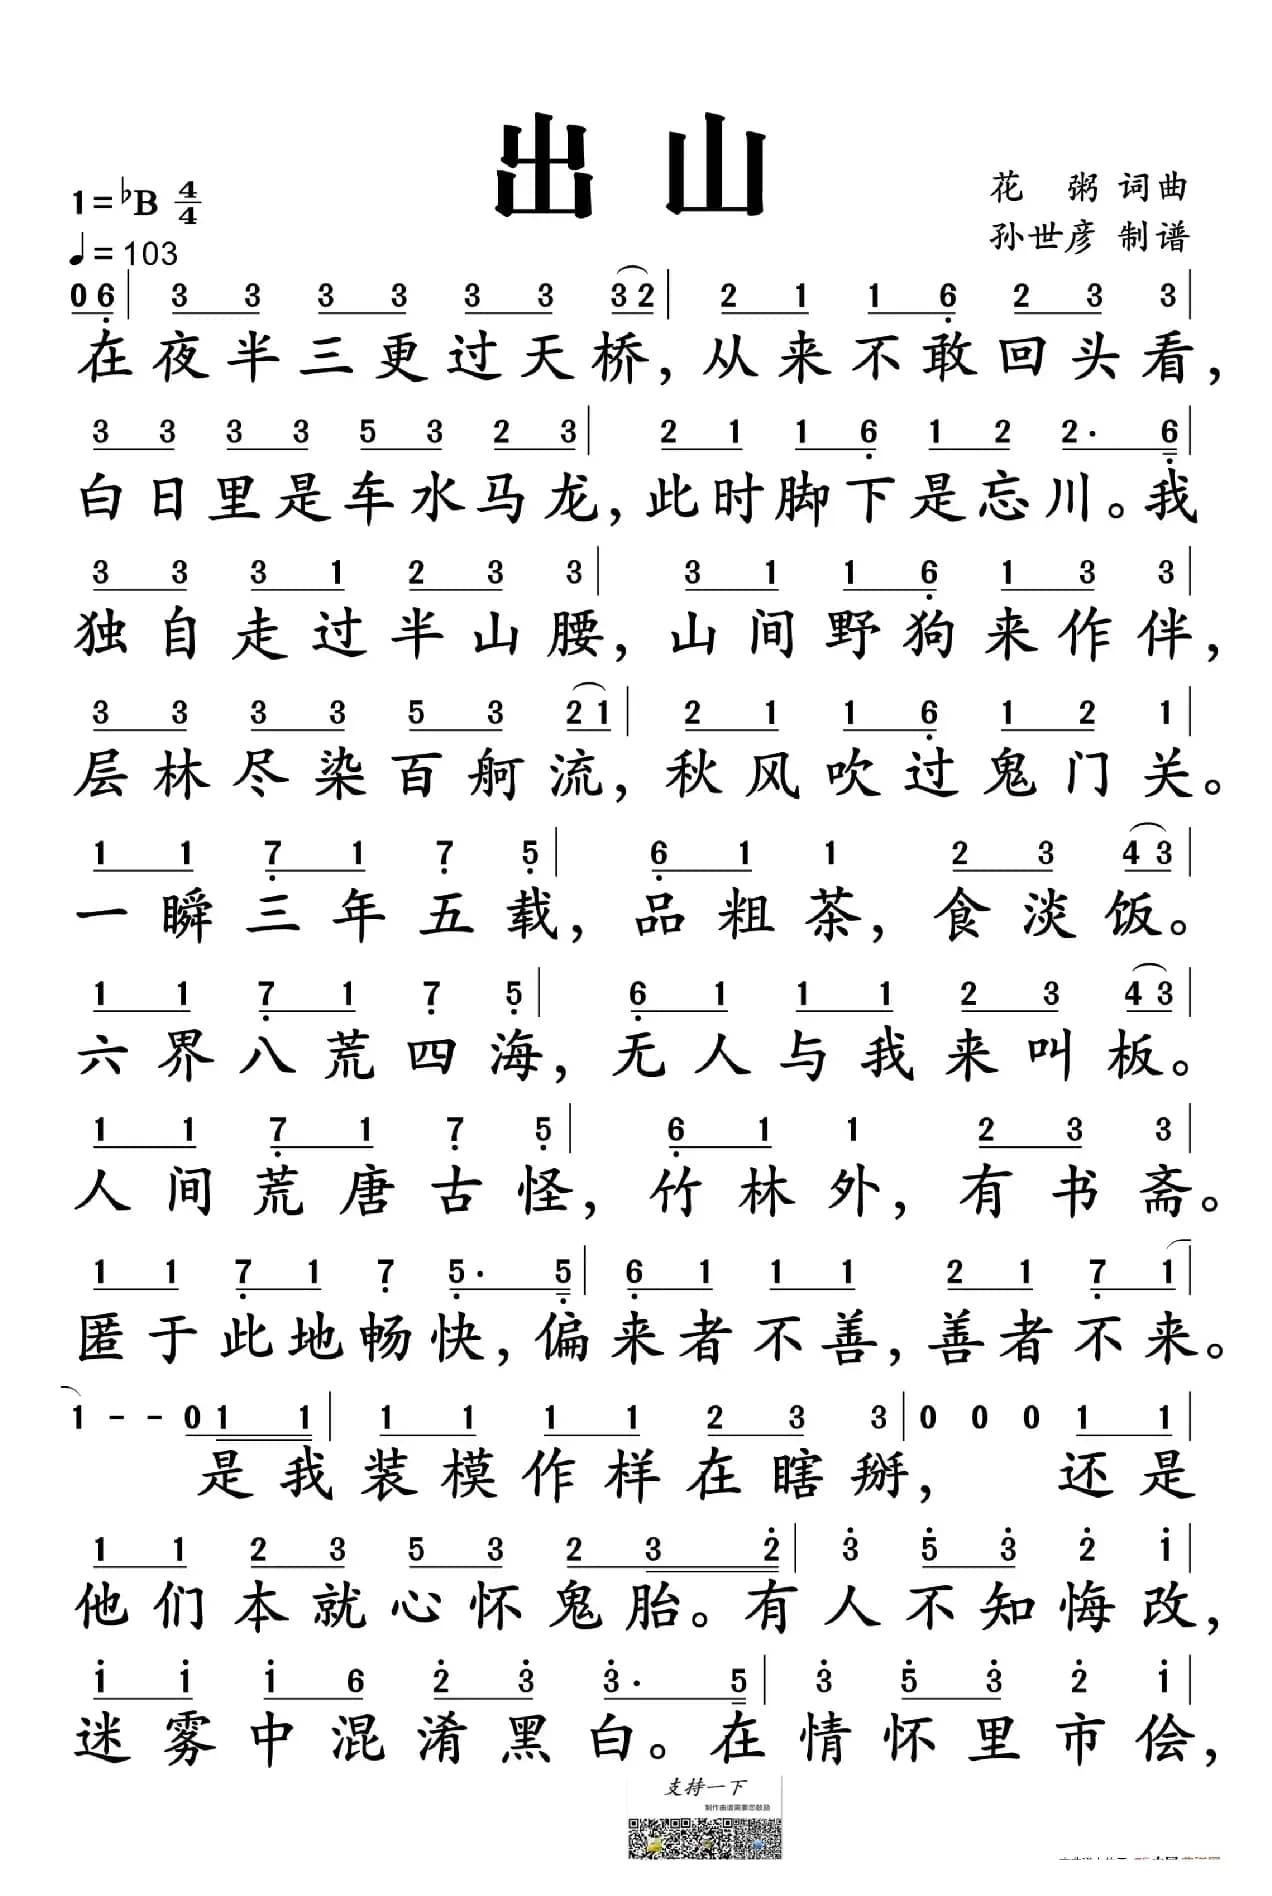 出山
花粥 词曲
1=♭B 4/4
孙世彦 制谱
♩=103
0 6 | 3 3 3 3 3 3 3 2 | 2 1 1 6 2 3 3 |
在夜半三更过天桥，从来不敢回头看，
3 3 3 3 5 3 2 3 | 2 1 1 6 1 2 2· 6 |
白日里是车水马龙，此时脚下是忘川。我
3 3 3 1 2 3 3 | 3 1 1 6 1 3 3 |
独自走过半山腰，山间野狗来作伴，
3 3 3 3 5 3 2 1 | 2 1 1 6 1 2 1 |
层林尽染百舸流，秋风吹过鬼门关。
1 1 7 1 7 5 | 6 1 1 2 3 4 3 |
一瞬三年五载，品粗茶，食淡饭。
1 1 7 1 7 5 | 6 1 1 1 2 3 4 3 |
六界八荒四海，无人与我来叫板。
1 1 7 1 7 5 | 6 1 1 2 3 3 |
人间荒唐古怪，竹林外，有书斋。
1 1 7 1 7 5· 5 | 6 1 1 1 2 1 7 1 |
匿于此地畅快，偏来者不善，善者不来。
1 - - 0 1 1 | 1 1 1 1 2 3 3 | 0 0 0 1 1 |
是我装模作样在瞎掰，还是
1 1 2 3 5 3 2 3 2 | 3 5 3 2 1 |
他们本就心怀鬼胎。有人不知悔改，
1 1 1 6 2 3 3· 5 | 3 5 3 2 1 |
迷雾中混淆黑白。在情怀里市侩，
支持一下
制作曲谱需要您鼓励